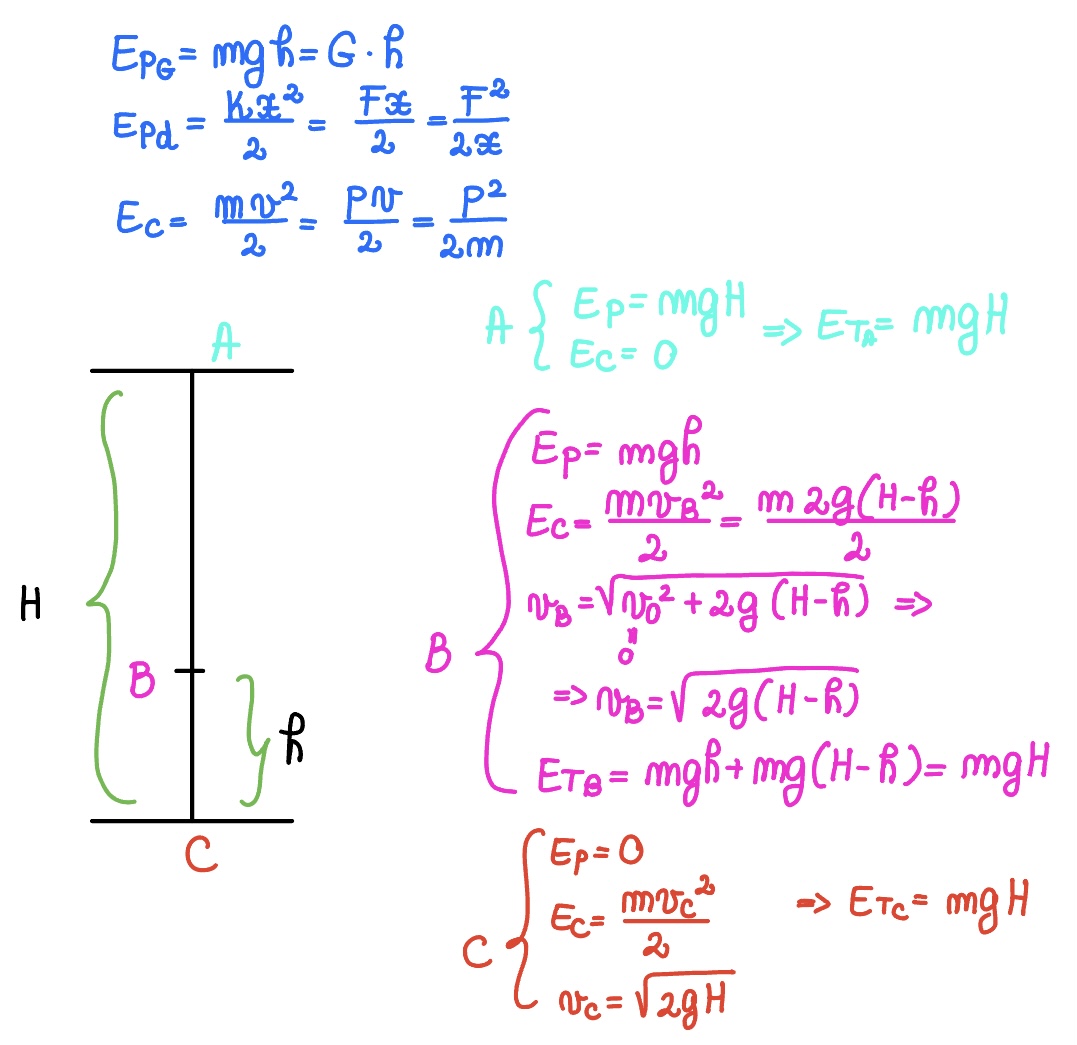 E_PG = mgh = G · h
E_Pd = Kx²/2 = Fx/2 = F²/2x
E_C = mv²/2 = Pv/2 = P²/2m
A { E_P = mgH
E_C = 0 => E_TA = mgH
A
H
B
h
C
B { E_P = mgh
E_C = mv_B²/2 = m 2g(H-h)/2
v_B = √(v_0² + 2g(H-h)) =>
"
0
=> v_B = √(2g(H-h))
E_TB = mgh + mg(H-h) = mgH
C { E_P = 0
E_C = mv_C²/2 => E_TC = mgH
v_C = √(2gH)